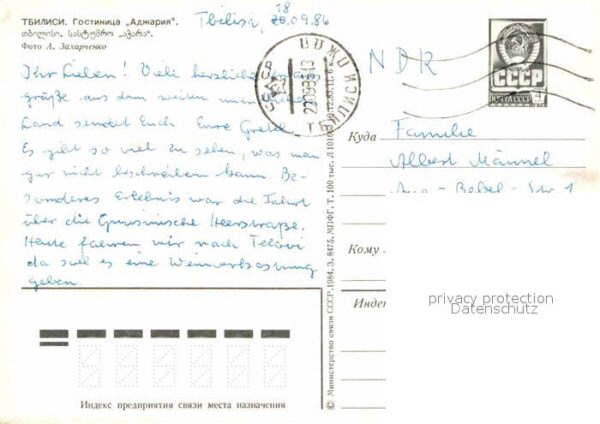 ТБИЛИСИ. Гостиница „Аджария".
თბილისი. სასტუმრო „აჭარა".
Фото А. Захарченко
Tbilisi, 18.09.86
Ihr Lieben! Viele herzliche
grüße aus dem weiten
Land sendet Euch Eure Gretel.
Es gibt so viel zu sehen, was man
gar nicht beschreiben kann. Be-
sonderes Erlebnis war die Fahrt
über die Grusinische Heerstraße.
Heute fahren wir nach Telavi
da soll es eine Weinverkostung
geben
СССР
ТБИЛИСИ
NDR
СССР
ПОЧТА СССР
4
Куда
Familie
Albert Männel
Bebel-Str. 1
Кому
Индекс
privacy protection
Datenschutz
Индекс предприятия связи места назначения
© Министерство связи СССР. 1984. З. 8475. МПФГ. Т. 100 тыс.